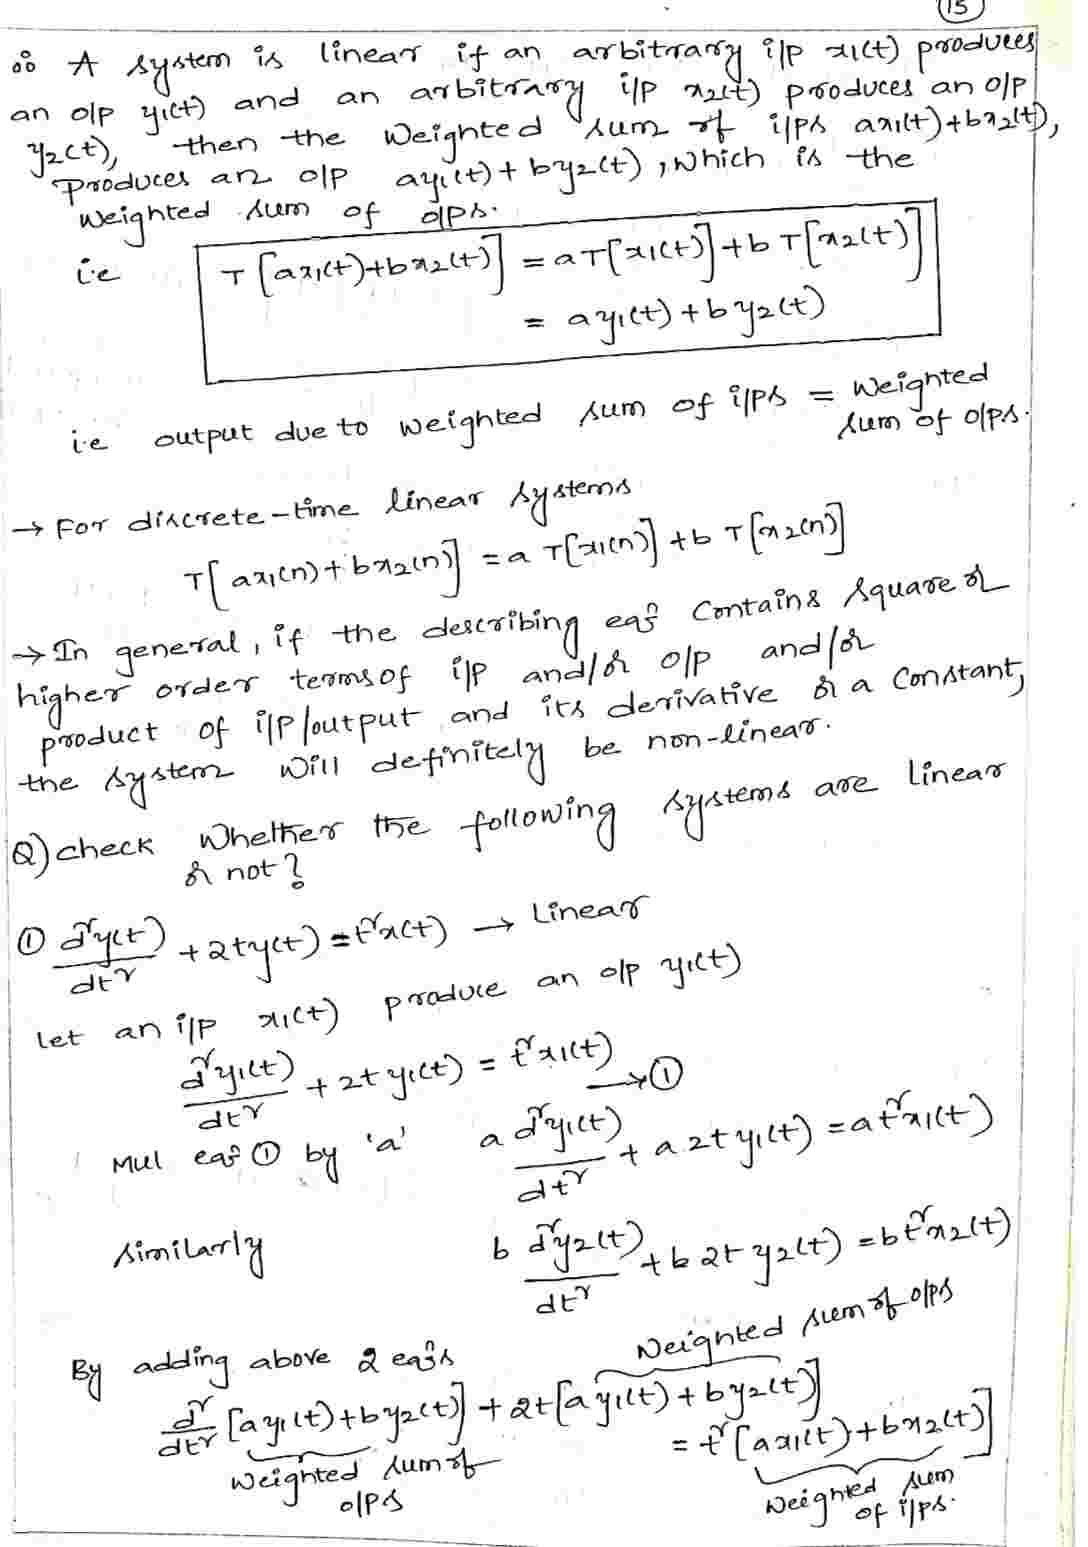 15
∴ A system is linear if an arbitrary i/p x1(t) produces
an o/p y1(t) and an arbitrary i/p x2(t) produces an o/p
y2(t), then the Weighted sum of i/ps ax1(t)+bx2(t),
produces an o/p ay1(t) + by2(t), which is the
weighted sum of o/ps.
i.e T[ax1(t)+bx2(t)] = aT[x1(t)]+bT[x2(t)]
= ay1(t)+by2(t)
i.e output due to weighted sum of i/ps = weighted
sum of o/ps.
→ For discrete-time linear systems
T[ax1(n)+bx2(n)] = a T[x1(n)] +b T[x2(n)]
→ In general, if the describing eqn contains square or
higher order terms of i/p and/or o/p and/or
product of i/p/output and its derivative or a constant,
the system will definitely be non-linear.
Q) check Whether the following systems are linear
or not?
① d²y(t)/dt² + 2ty(t) = t²x(t) → Linear
Let an i/p x1(t) produce an o/p y1(t)
d²y1(t)/dt² + 2t y1(t) = t²x1(t) → ①
Mul eqn ① by 'a' a d²y1(t)/dt² + a 2t y1(t) = a t²x1(t)
similarly b d²y2(t)/dt² + b 2t y2(t) = b t²x2(t)
By adding above 2 eqns Weighted sum of o/ps
d²/dt² [ay1(t)+by2(t)] + 2t[ay1(t)+by2(t)]
= t²[ax1(t)+bx2(t)]
Weighted sum of
o/ps
Weighted sum
of i/ps.